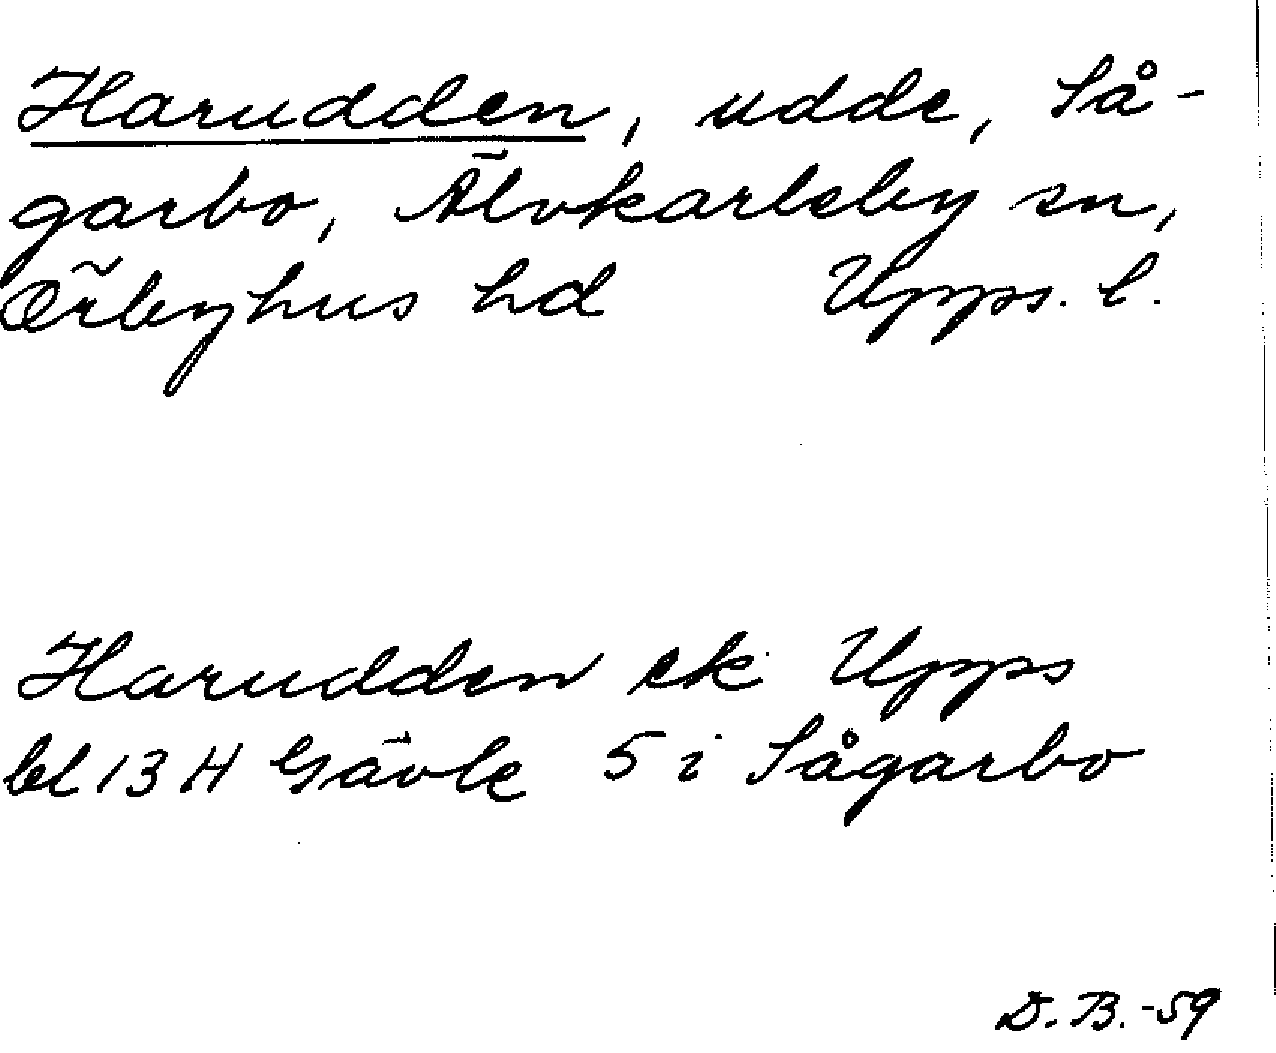 Harudden, udde, Så-
garbo, Älvkarleby sn,
Örbyhus hd Upps. l.
Harudden ek Upps
bl 13 H Gävle 5 i Sågarbo
D. B. -59